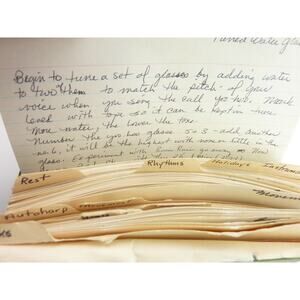 Tuned Water Glas
Begin to tune a set of glasses by adding water
to two of them to match the pitch of your
voice when you sing the call yoo hoo. Mark
level with tape so it can be kept in tune
More water, the lower the tone.
Number the yoo hoo glasses 5 & 3 - add another
next, it will be the highest with none or little in the
glass. Experiment with Rain Rain go away
Rest
Rhythms
Holidays
Instrum
Movemen
Autoharp